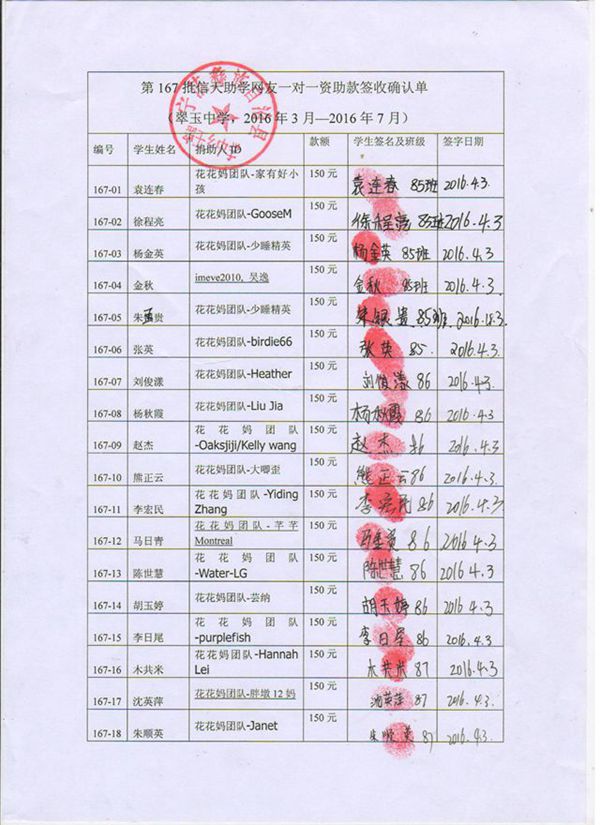 第 167 批信天助学网友一对一资助款签收确认单
（翠玉中学，2016 年 3 月—2016 年 7 月）
编号 学生姓名 捐助人 ID 款额 学生签名及班级 签字日期
167-01 袁连春 花花妈团队-家有好小孩 150 元 袁连春 85班 2016.4.3.
167-02 徐程亮 花花妈团队-GooseM 150 元 徐程亮 85班 2016.4.3
167-03 杨金英 花花妈团队-少睡精英 150 元 杨金英 85班 2016.4.3
167-04 金秋 imeve2010, 吴逸 150 元 金秋 85班 2016.4.3
167-05 朱贵 花花妈团队-少睡精英 150 元 朱银贵 85班
167-06 张英 花花妈团队-birdie66 150 元 张英 85. 2016.4.3.
167-07 刘俊漾 花花妈团队-Heather 150 元 刘俊漾 86 2016.4.3
167-08 杨秋霞 花花妈团队-Liu Jia 150 元 杨秋霞 86 2016.4.3
167-09 赵杰 花花妈团队-Oaksjiji/Kelly wang 150 元 赵杰 86 2016.4.3
167-10 熊正云 花花妈团队-大唧歪 150 元 熊正云 86 2016.4.3.
167-11 李宏民 花花妈团队-Yiding Zhang 150 元 李宏民 86 2016.4.3
167-12 马日青 花花妈团队-芊芊 Montreal 150 元 86 2016.4.3
167-13 陈世慧 花花妈团队-Water-LG 150 元 陈世慧 86 2016.4.3
167-14 胡玉婷 花花妈团队-芸纳 150 元 胡玉婷 86 2016.4.3
167-15 李日尾 花花妈团队-purplefish 150 元 李日 86 2016.4.3
167-16 木共米 花花妈团队-Hannah Lei 150 元 木共米 87 2016.4.3
167-17 沈英萍 花花妈团队-胖墩 12 妈 150 元 沈英萍 87 2016.4.3.
167-18 朱顺英 花花妈团队-Janet 150 元 朱顺英 87 2016.4.3.